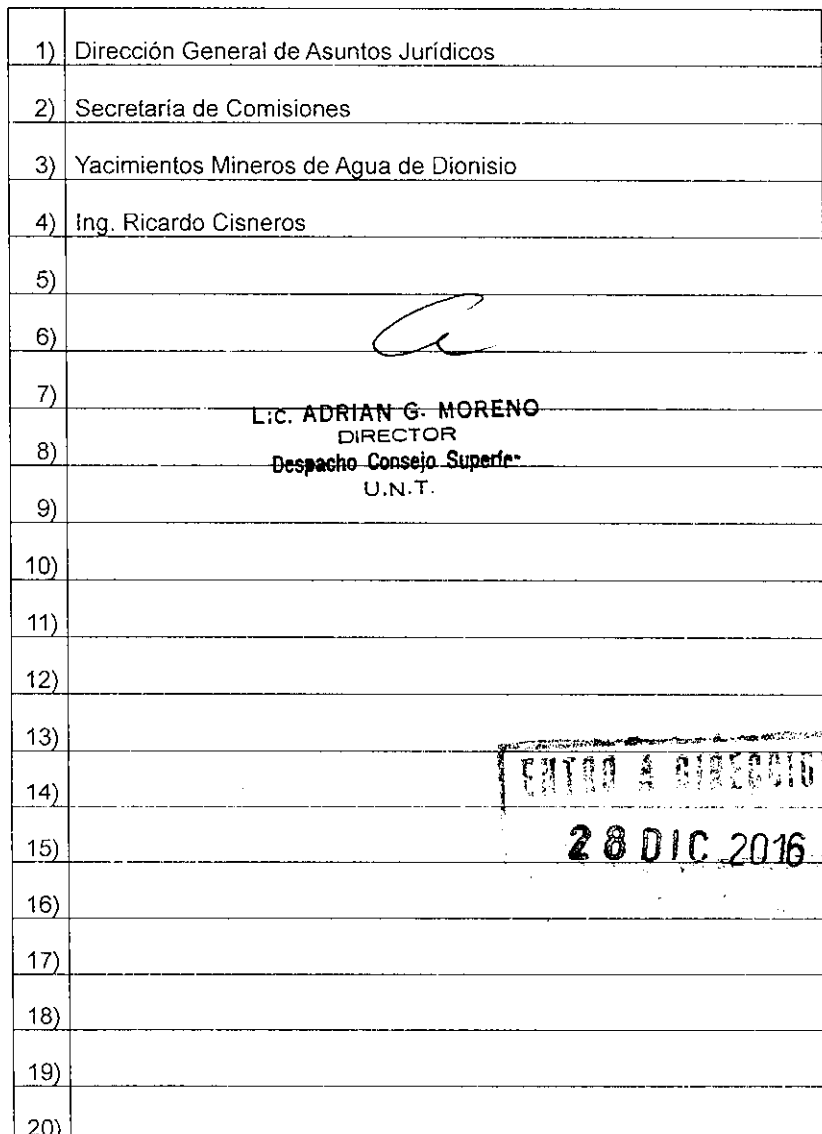 1) Dirección General de Asuntos Jurídicos
2) Secretaría de Comisiones
3) Yacimientos Mineros de Agua de Dionisio
4) Ing. Ricardo Cisneros
5)
6)
7)
Lic. ADRIAN G. MORENO
DIRECTOR
8)
Despacho Consejo Superior
U.N.T.
9)
10)
11)
12)
13)
ENTRO A DIRECCIO
14)
28 DIC 2016
15)
16)
17)
18)
19)
20)